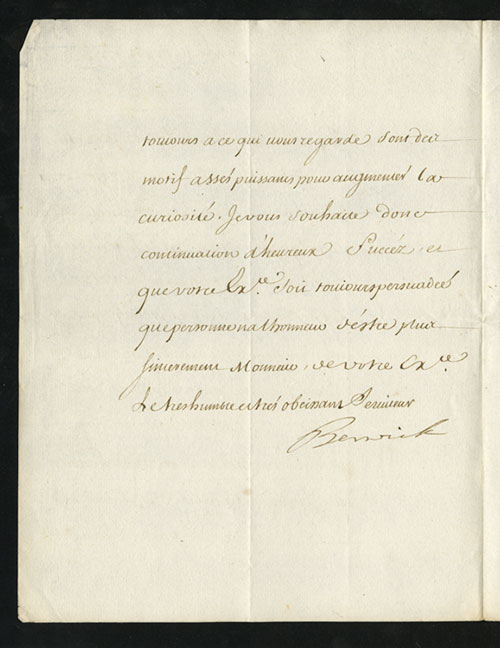 toujours a ce qui vous regarde sont des
motif assés puissans pour augmenter la
curiosité. Je vous souhaite donc
continuation d'heureux succéz, et
que votre Exce. soit toujours persuadée
que personne na lhonneur d'éstre plus
sincerement Monsieur, de votre Exce.
Le tres humble et trés obeissant serviteur
Berwick